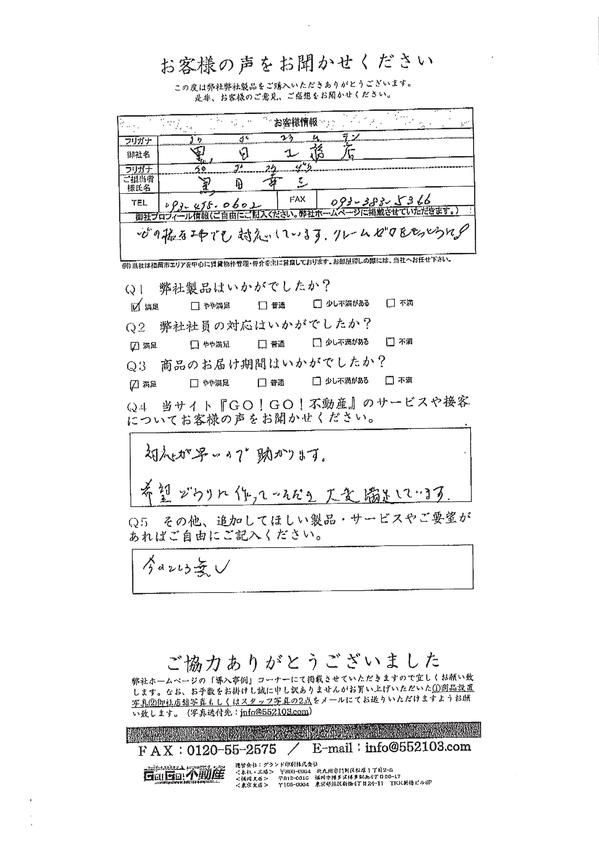 お客様の声をお聞かせください
この度は弊社弊社製品をご購入いただきありがとうございます。
是非、お客様のご意見、ご感想をお聞かせください。
お客様情報
フリガナ
御社名 黒田工務店
フリガナ
ご担当者様氏名 黒田幸三
TEL 093-475-0602 FAX 093-383-5366
御社プロフィール情報（ご自由にご記入ください。弊社ホームページに掲載させていただきます。）
どの様な工事でも対応しています。クレームゼロをモットーに
例）当社は福岡市エリアを中心に賃貸物件管理・仲介を主に営業しております。お部屋探しの際には、当社へお任せ下さい。
Q1 弊社製品はいかがでしたか？
☑ 満足 □ やや満足 □ 普通 □ 少し不満がある □ 不満
Q2 弊社社員の対応はいかがでしたか？
☑ 満足 □ やや満足 □ 普通 □ 少し不満がある □ 不満
Q3 商品のお届け期間はいかがでしたか？
☑ 満足 □ やや満足 □ 普通 □ 少し不満がある □ 不満
Q4 当サイト『GO！GO！不動産』のサービスや接客
についてお客様の声をお聞かせください。
対応が早いので助かります。
希望どうりに作っていただき大変満足しています。
Q5 その他、追加してほしい製品・サービスやご要望が
あればご自由にご記入ください。
今のところ無し
ご協力ありがとうございました
弊社ホームページの「導入事例」コーナーにて掲載させていただきますので宜しくお願い致
します。なお、お手数をお掛けし誠に申し訳ありませんがお買い上げいただいた①商品設置
写真②御社店舗写真もしくはスタッフ写真の2点をメールにてお送りいただけますようお願
い致します。（写真送付先：info@552103.com）
FAX：0120-55-2575 ／ E-mail：info@552103.com
GO!GO!不動産
運営会社：グランド印刷株式会社
＜本社・工場＞ 〒800-0004 北九州市門司区松原1丁目2-6
＜福岡支店＞ 〒812-0016 福岡市博多区博多駅南4丁目20-17
＜東京支店＞ 〒105-0004 東京都港区新橋4丁目24-11